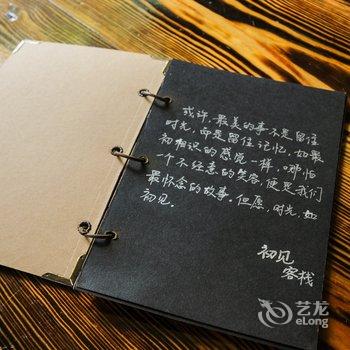 或许,最美的事不是留住
时光,而是留住记忆,如最
初相识的感觉一样,哪怕
一个不经意的笑容,便是我们
最怀念的故事。但愿,时光,如
初见。
初见
客栈
艺龙
eLong